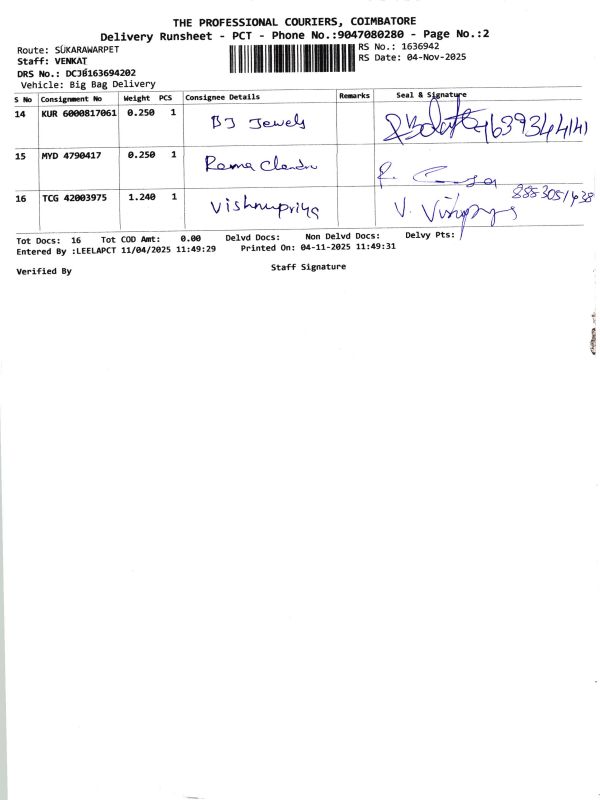 THE PROFESSIONAL COURIERS, COIMBATORE
Delivery Runsheet - PCT - Phone No.:9047080280 - Page No.:2
Route: SUKARAWARPET
RS No.: 1636942
Staff: VENKAT
RS Date: 04-Nov-2025
DRS No.: DCJB163694202
Vehicle: Big Bag Delivery
S No Consignment No Weight PCS Consignee Details Remarks Seal & Signature
14 KUR 6000817061 0.250 1 BJ Jewels 9639344141
15 MYD 4790417 0.250 1 Rama Chandru R.
16 TCG 42003975 1.240 1 Vishnupriya V. 8853051438
Tot Docs: 16 Tot COD Amt: 0.00 Delvd Docs: Non Delvd Docs: Delvy Pts:
Entered By :LEELAPCT 11/04/2025 11:49:29 Printed On: 04-11-2025 11:49:31
Verified By Staff Signature